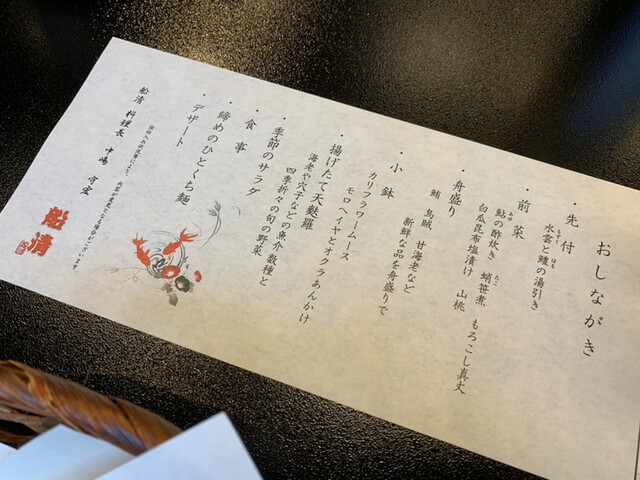 おしながき
・先付
水雲と鱧の湯引き
もずく はも
・前菜
鮎の酢炊き 蛸笹煮 もろこし真丈
あゆ たこ
白瓜昆布塩漬け 山桃
・舟盛り
鮪 烏賊 甘海老など
新鮮な品を舟盛りで
・小鉢
カリフラワームース
モロヘイヤとオクラあんかけ
・揚げたて天麩羅
海老や穴子などの魚介数種と
四季折々の旬の野菜
・季節のサラダ
・食事
・締めのひとくち麺
・デザート
船清 料理長 中嶋
内容が変更になる場合がございます
船清